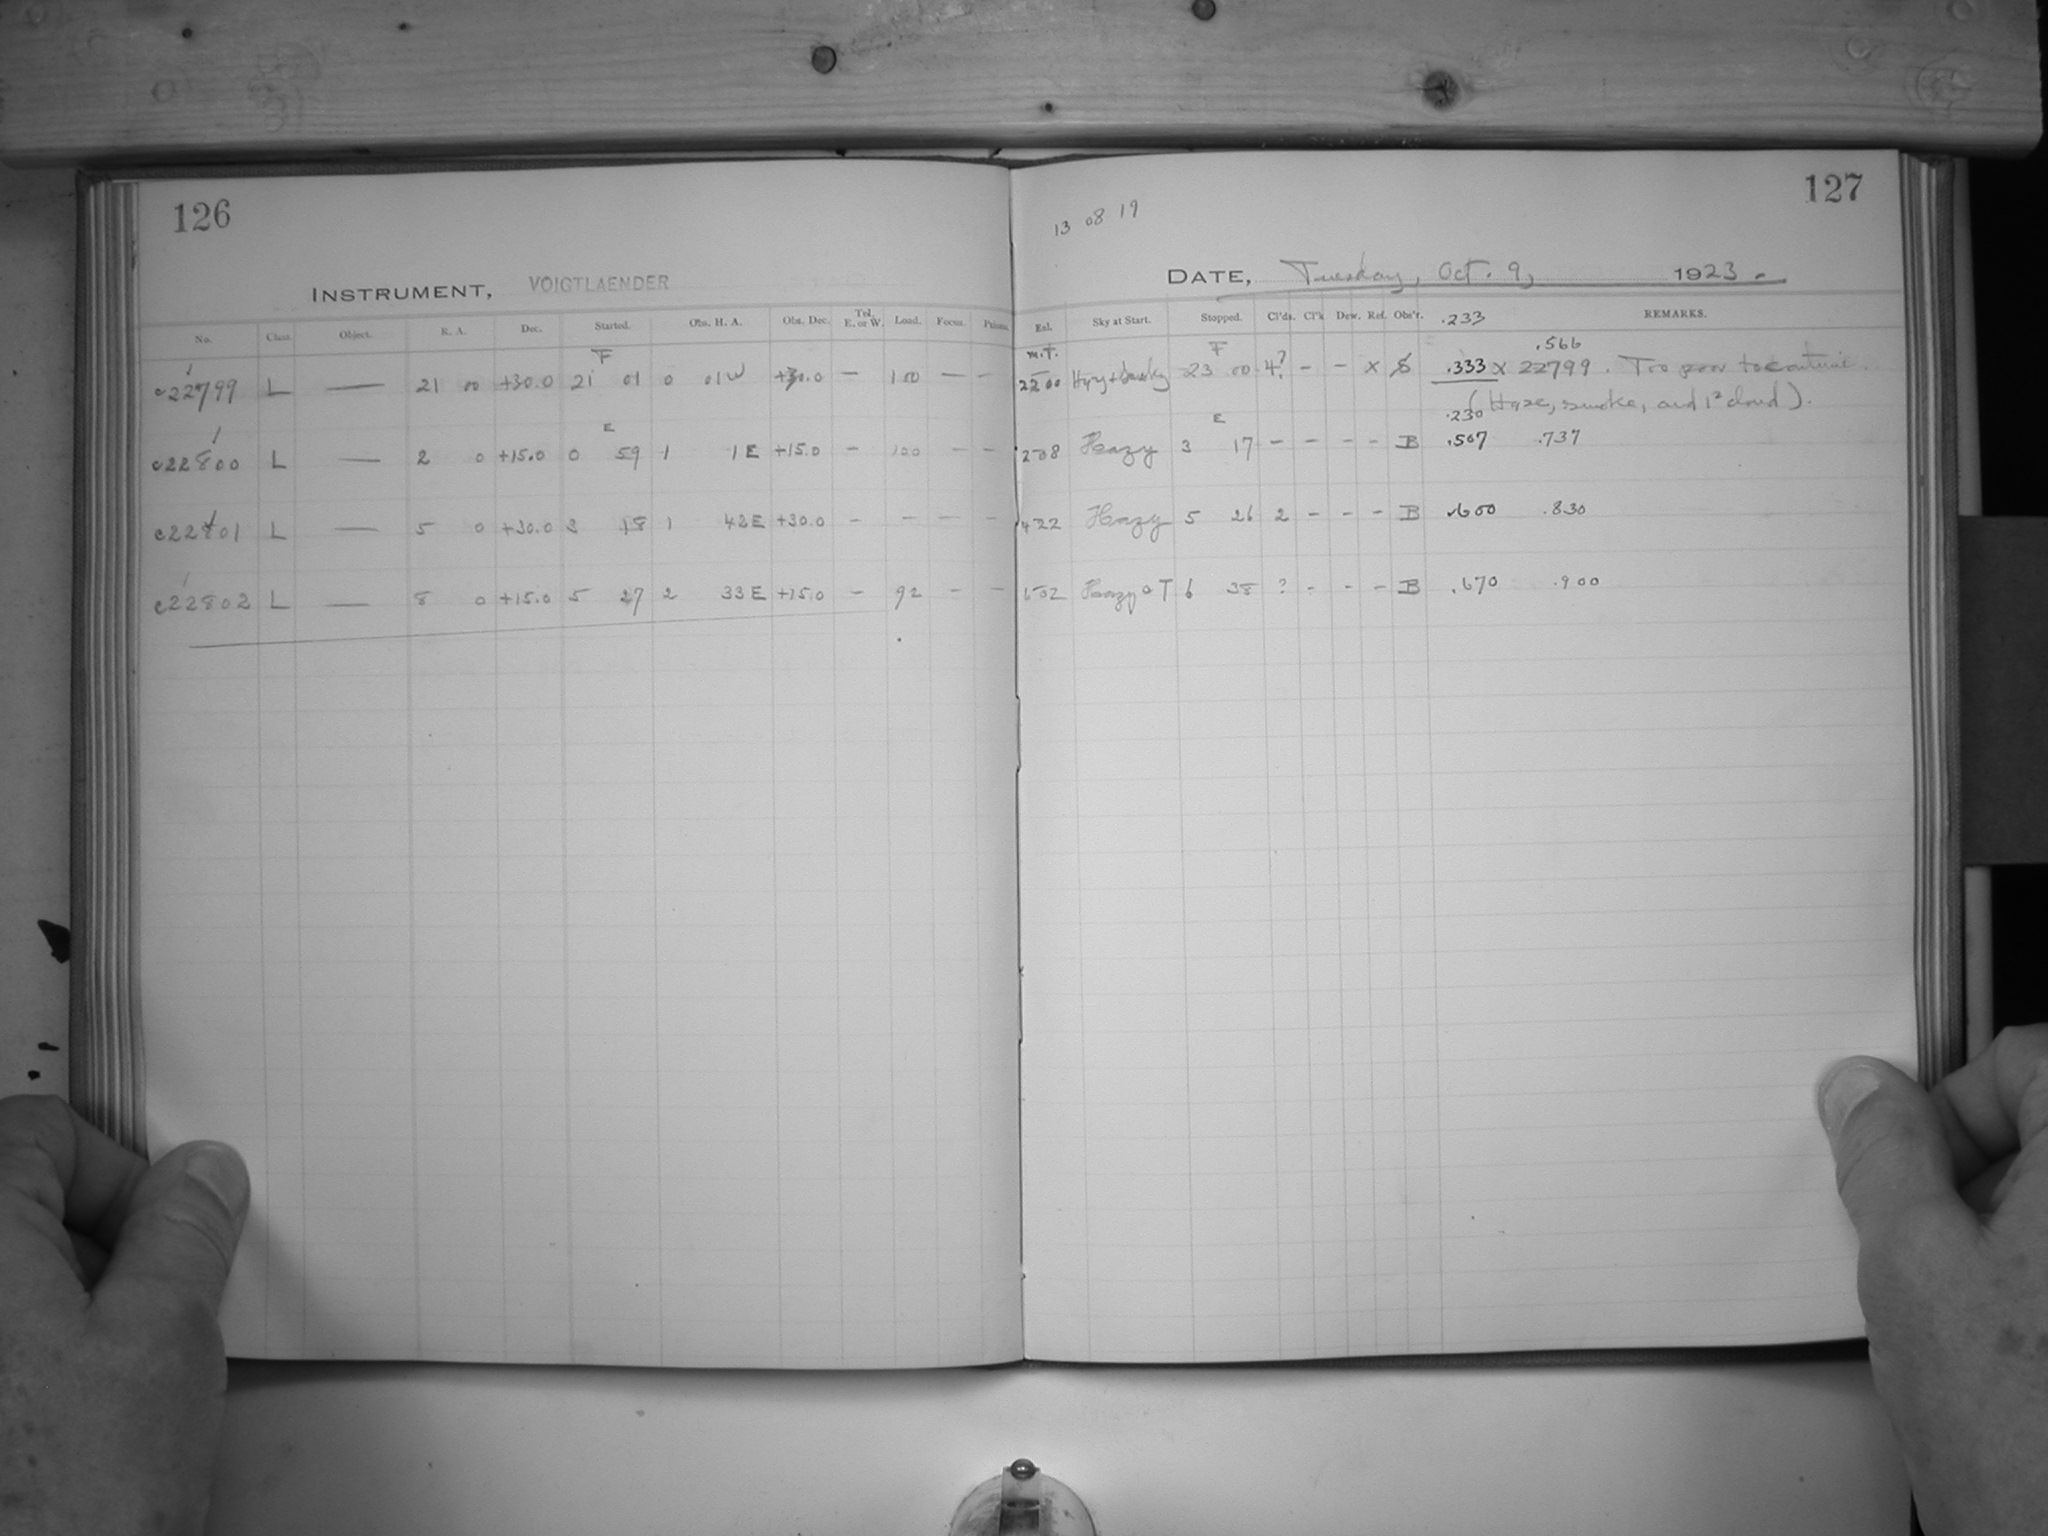 126
INSTRUMENT, VOIGTLAENDER
No. Class. Object. R. A. Dec. Started. Obs. H. A. Obs. Dec. Tel. E. or W. Load. Focus. Prisms.
F
c22799 L — 21 00 +30.0 21 01 0 01W +30.0 — 100 — —
E
c22800 L — 2 0 +15.0 0 59 1 1E +15.0 — 100 — —
c22801 L — 5 0 +30.0 3 18 1 42E +30.0 - - - -
c22802 L — 8 0 +15.0 5 27 2 33E +15.0 — 92 - —
127
13 08 19
DATE, Tuesday, Oct. 9, 1923.
Exl. Sky at Start. Stopped. Cl'ds. Cl'k Dew. Ref. Obs'r. .233 REMARKS.
M.T. F .566
2200 Hazy + Smoky 23 00 4? - - x S .333 x 22799. Too poor to continue.
E .230 (Haze, smoke, and cloud).
208 Hazy 3 17 - - - - B .507 .737
422 Hazy 5 26 2 - - - B .600 .830
Hazy 6 38 ? - - - B .670 .900